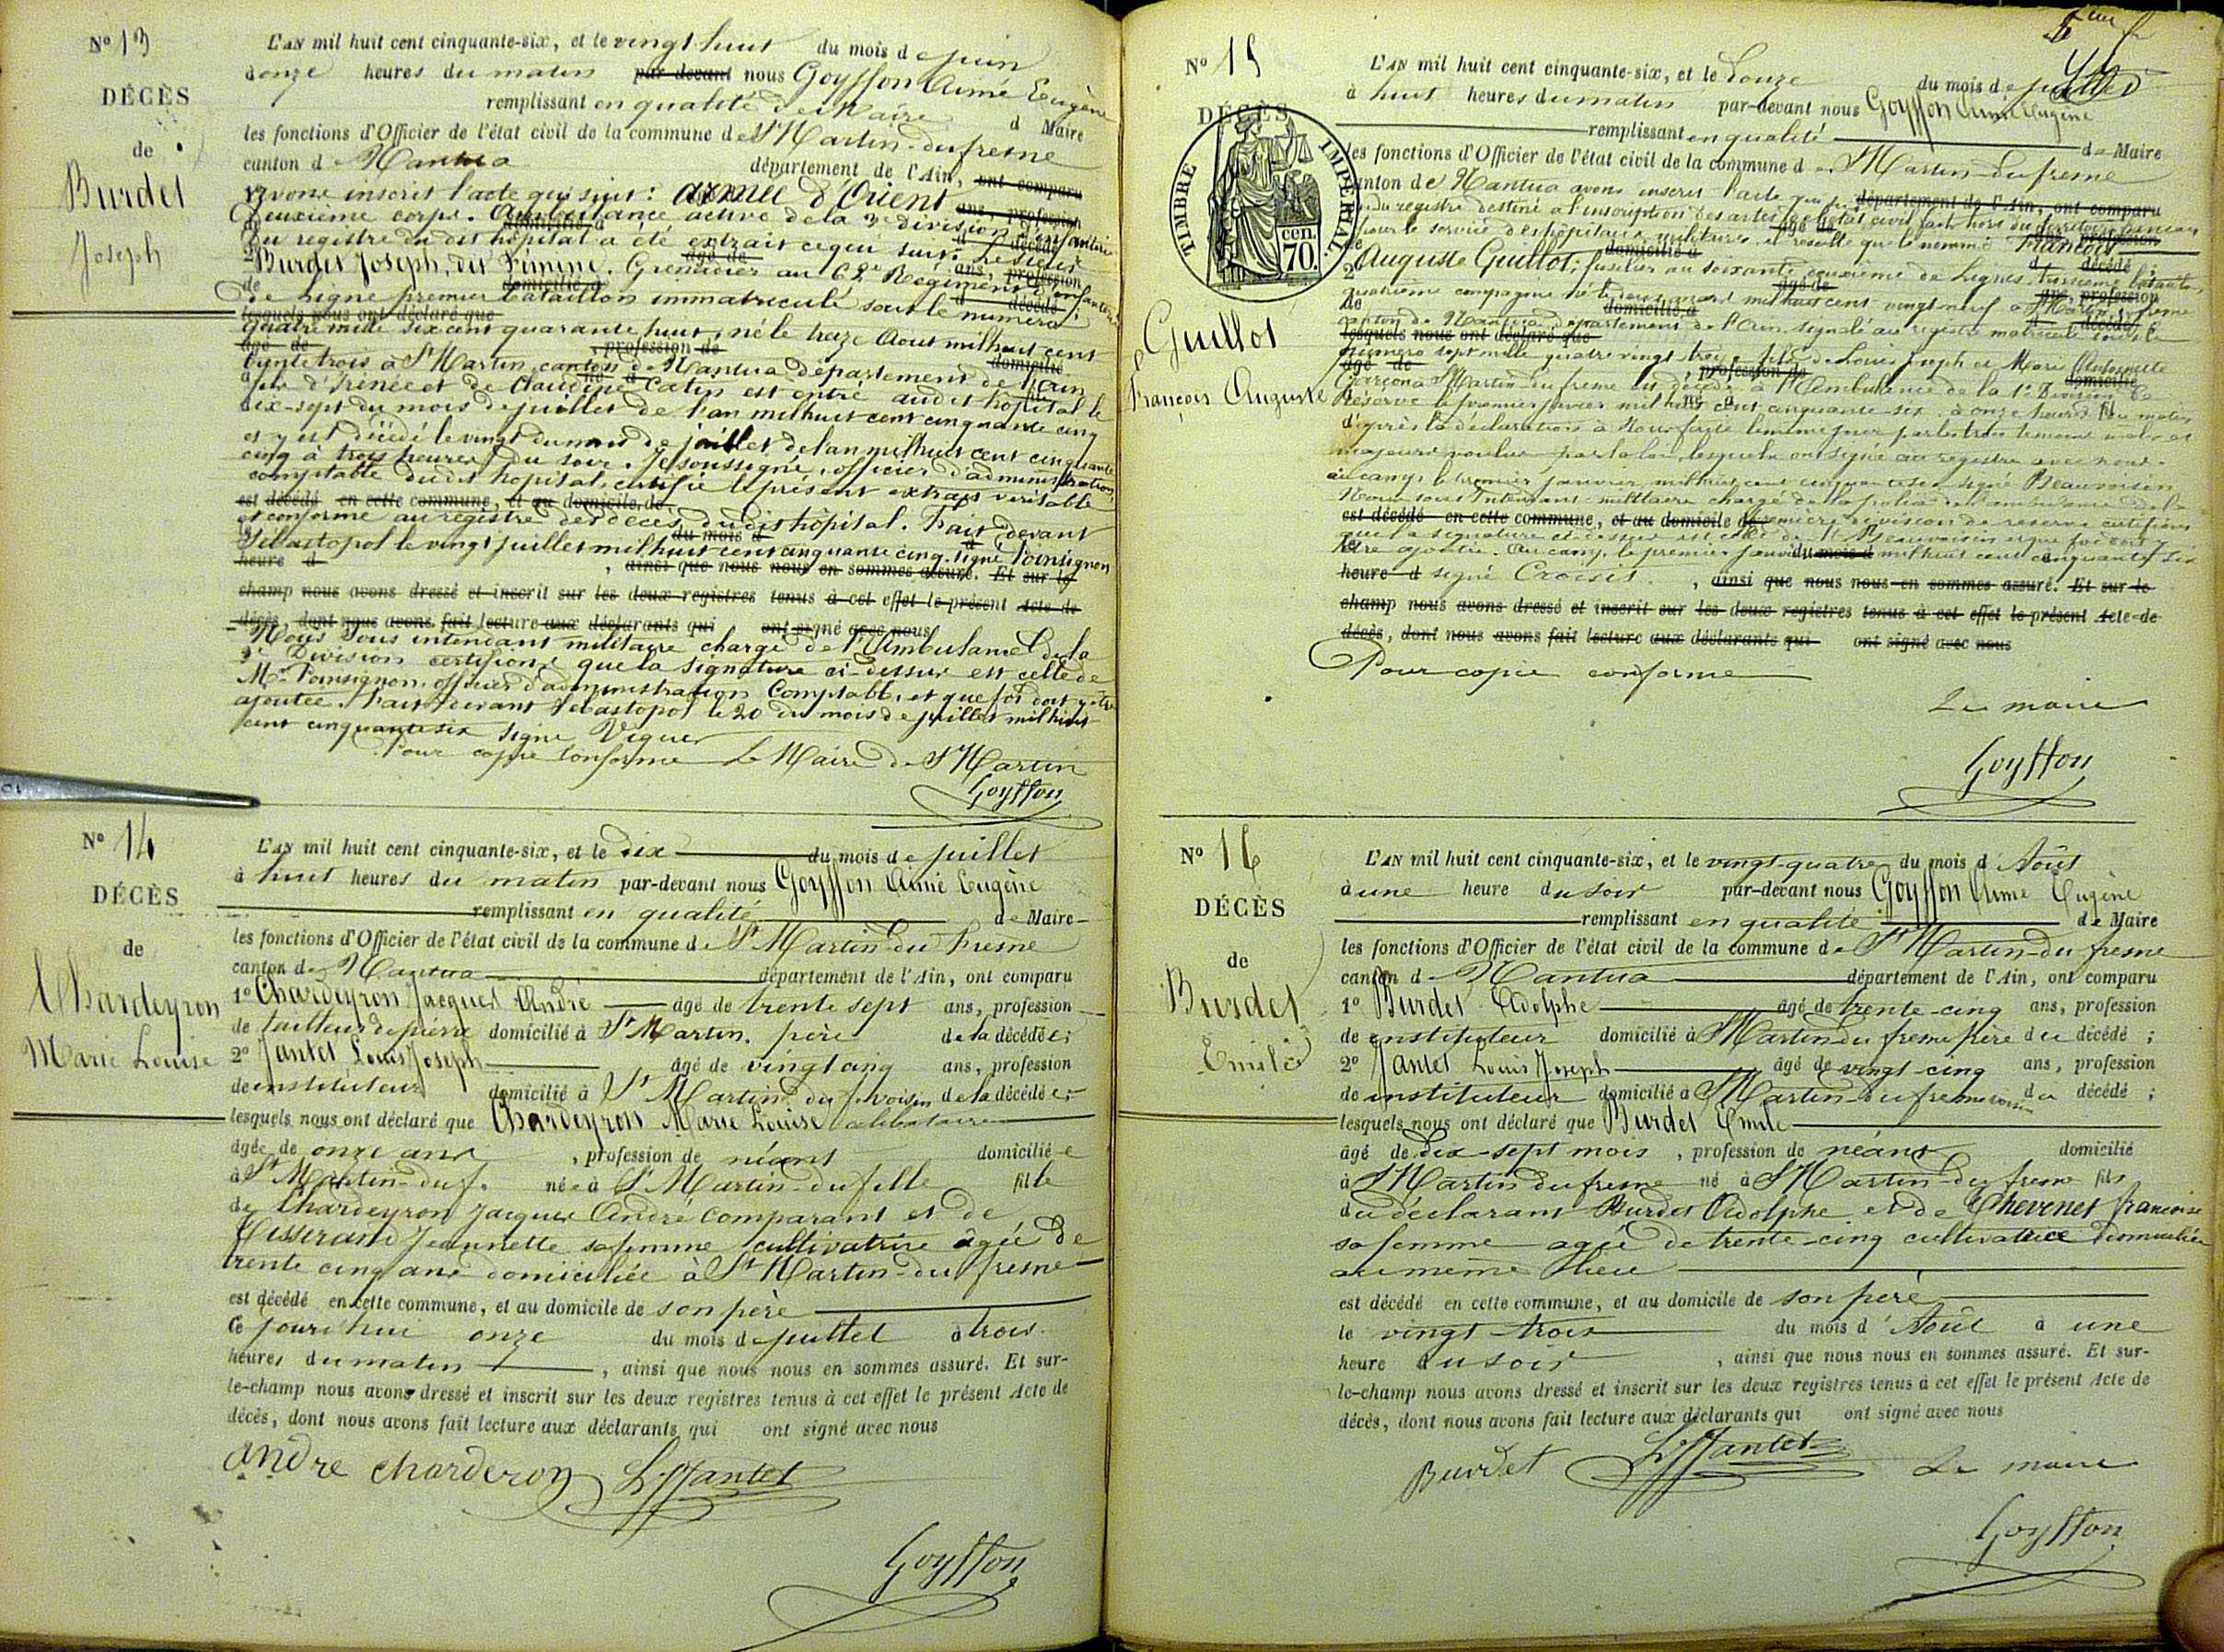 Nº 13
DÉCÈS
de
Burdet
Joseph
L'AN mil huit cent cinquante-six, et le vingt huit du mois de juin
à onze heures du matin par devant nous Goyffon Aimé Eugène
remplissant en qualité de Maire d Maire
les fonctions d'Officier de l'état civil de la commune de St Martin-du fresne
canton de Nantua département de l'Ain, ont comparu
avons inscrit l'acte qui suit: armée d'Orient ans, profession
Deuxième corps. Ambulance active de la 3e division d'infanterie
Du registre du dit hôpital a été extrait ce qui suit: Le sieur
Burdet Joseph, dit Firmin. Grenadier au 62e Régiment d'infanterie
de Ligne premier bataillon immatriculé sous le numéro
lesquels nous ont déclaré que
quatre mille six cent quarante huit, né le treize Aout mil huit cent
âgé de , profession de domicilié
vingt trois à St Martin canton de Nantua département de l'ain
fils d'Irénée et de Claudine Catin est entré audit hôpital le
dix-sept du mois de juillet de l'an mil huit cent cinquante cinq
et y est décédé le vingt du mois de juillet de l'an mil huit cent cinquante
cinq à trois heures du soir. Je soussigné, officier d'administration
comptable dudit hôpital, certifie le présent extrait veritable
est décédé en cette commune, et au domicile de
et conforme au registre des décès dudit hôpital. Fait devant
du mois d
Sébastopol le vingt juillet mil huit cent cinquante cinq. Signé Poinsignon
heure d , ainsi que nous nous en sommes assuré. Et sur le
champ nous avons dressé et inscrit sur les deux registres tenus à cet effet le présent Acte de
décès, dont nous avons fait lecture aux déclarants qui ont signé avec nous
Nous Sous intendant militaire chargé de l'Ambulance de la
3e Division certifions que la signature ci-dessus est celle de
Mr Poinsignon, officier d'administration Comptable, et que foi doit y être
ajoutée. Fait devant Sébastopol le 20 du mois de juillet mil huit
cent cinquante six signé Viguer
Pour copie conforme Le Maire de St Martin
Goyffon
Nº 14
DÉCÈS
de
Chardeyron
Marie Louise
L'AN mil huit cent cinquante-six, et le dix du mois de juillet
à huit heures du matin par-devant nous Goyffon Aimé Eugène
remplissant en qualité de Maire
les fonctions d'Officier de l'état civil de la commune de St Martin du fresne
canton de Nantua département de l'Ain, ont comparu
1º Chardeyron Jacques André âgé de trente sept ans, profession
de tailleur de pierre domicilié à St Martin. père de la décédée;
2º Jantet Louis Joseph âgé de vingt cinq ans, profession
de instituteur domicilié à St Martin du f. voisin de la décédée;
lesquels nous ont déclaré que Chardeyron Marie Louise célibataire
âgée de onze ans , profession de néant domiciliée
à St Martin-du f. née à St Martin-du f. elle fille
de Chardeyron Jacques André comparant et de
Tisserand Jeannette sa femme cultivatrice agée de
trente cinq ans domiciliée à St Martin-du fresne
est décédé en cette commune, et au domicile de son père
Ce jourd'hui onze du mois de juillet à trois
heures du matin , ainsi que nous nous en sommes assuré. Et sur-
le-champ nous avons dressé et inscrit sur les deux registres tenus à cet effet le présent Acte de
décès, dont nous avons fait lecture aux déclarants qui ont signé avec nous
andre charderon L Jantet
Goyffon
Nº 15
DÉCÈS
TIMBRE IMPÉRIAL
70 cen.
Guillot
François Auguste
L'AN mil huit cent cinquante-six, et le Douze du mois de juillet
à huit heures du matin par-devant nous Goyffon Aimé Eugène
remplissant en qualité de Maire
les fonctions d'Officier de l'état civil de la commune de St Martin-du fresne
canton de Nantua avons inscrit l'acte qui suit département de l'Ain, ont comparu
du registre destiné à l'inscription des actes de l'état civil fait hors du territoire français
pour le service d'hôpitaux militaires il résulte que le nommé François
2º Auguste Guillot, fusilier au soixante deuxième de Lignes troisième bataillon
quatrième compagnie né le mil huit cent vingt neuf à St Martin du fresne
canton de Nantua département de l'Ain, signalé au registre matricule sous le
lesquels nous ont déclaré que
numéro sept mille quatre vingt trois fils de Louis Joseph et Marie Antoinette
âgé de , profession de domicilié
Garçon à St Martin-du fresne est décédé à l'Ambulance de la 1e Division de
Réserve le premier janvier mil huit cent cinquante-six à onze heures du matin
d'après la déclaration à Nous faite
majeurs voulus par la loi, lesquels ont signé au registre avec nous.
au camp, le premier janvier mil huit cent cinquante six signé Beauvoisin
Nous sous Intendant militaire chargé de la police de l'ambulance de la
est décédé en cette commune, et au domicile de première division de réserve certifions
que la signature ci dessus est celle de Mr Beauvoisin et que foi doit y
être ajoutée. Au camp, le premier janvier mil huit cent cinquante six
heure d signé Croisis. , ainsi que nous nous en sommes assuré. Et sur-le
champ nous avons dressé et inscrit sur les deux registres tenus à cet effet le présent Acte de
décès, dont nous avons fait lecture aux déclarants qui ont signé avec nous
Pour copie conforme
Le maire
Goyffon
Nº 16
DÉCÈS
de
Burdet
Emile
L'AN mil huit cent cinquante-six, et le vingt-quatre du mois d'Août
à une heure du soir par-devant nous Goyffon Aimé Eugène
remplissant en qualité de Maire
les fonctions d'Officier de l'état civil de la commune de St Martin-du fresne
canton de Nantua département de l'Ain, ont comparu
1º Burdet Adolphe âgé de trente-cinq ans, profession
de instituteur domicilié à St Martin du fresne père du décédé ;
2º Jantet Louis Joseph âgé de vingt-cinq ans, profession
de instituteur domicilié à St Martin-du fresne voisin du décédé ;
lesquels nous ont déclaré que Burdet Emile
âgé de Dix-sept mois , profession de néant domicilié
à St Martin du fresne né à St Martin-du fresne fils
du déclarant Burdet Adolphe et de Chevenet françoise
sa femme agée de trente-cinq cultivatrice domiciliée
au même lieu
est décédé en cette commune, et au domicile de son père
le vingt trois du mois d'Août à une
heure du soir , ainsi que nous nous en sommes assuré. Et sur-
le-champ nous avons dressé et inscrit sur les deux registres tenus à cet effet le présent Acte de
décès, dont nous avons fait lecture aux déclarants qui ont signé avec nous
Burdet L Jantet Le maire
Goyffon